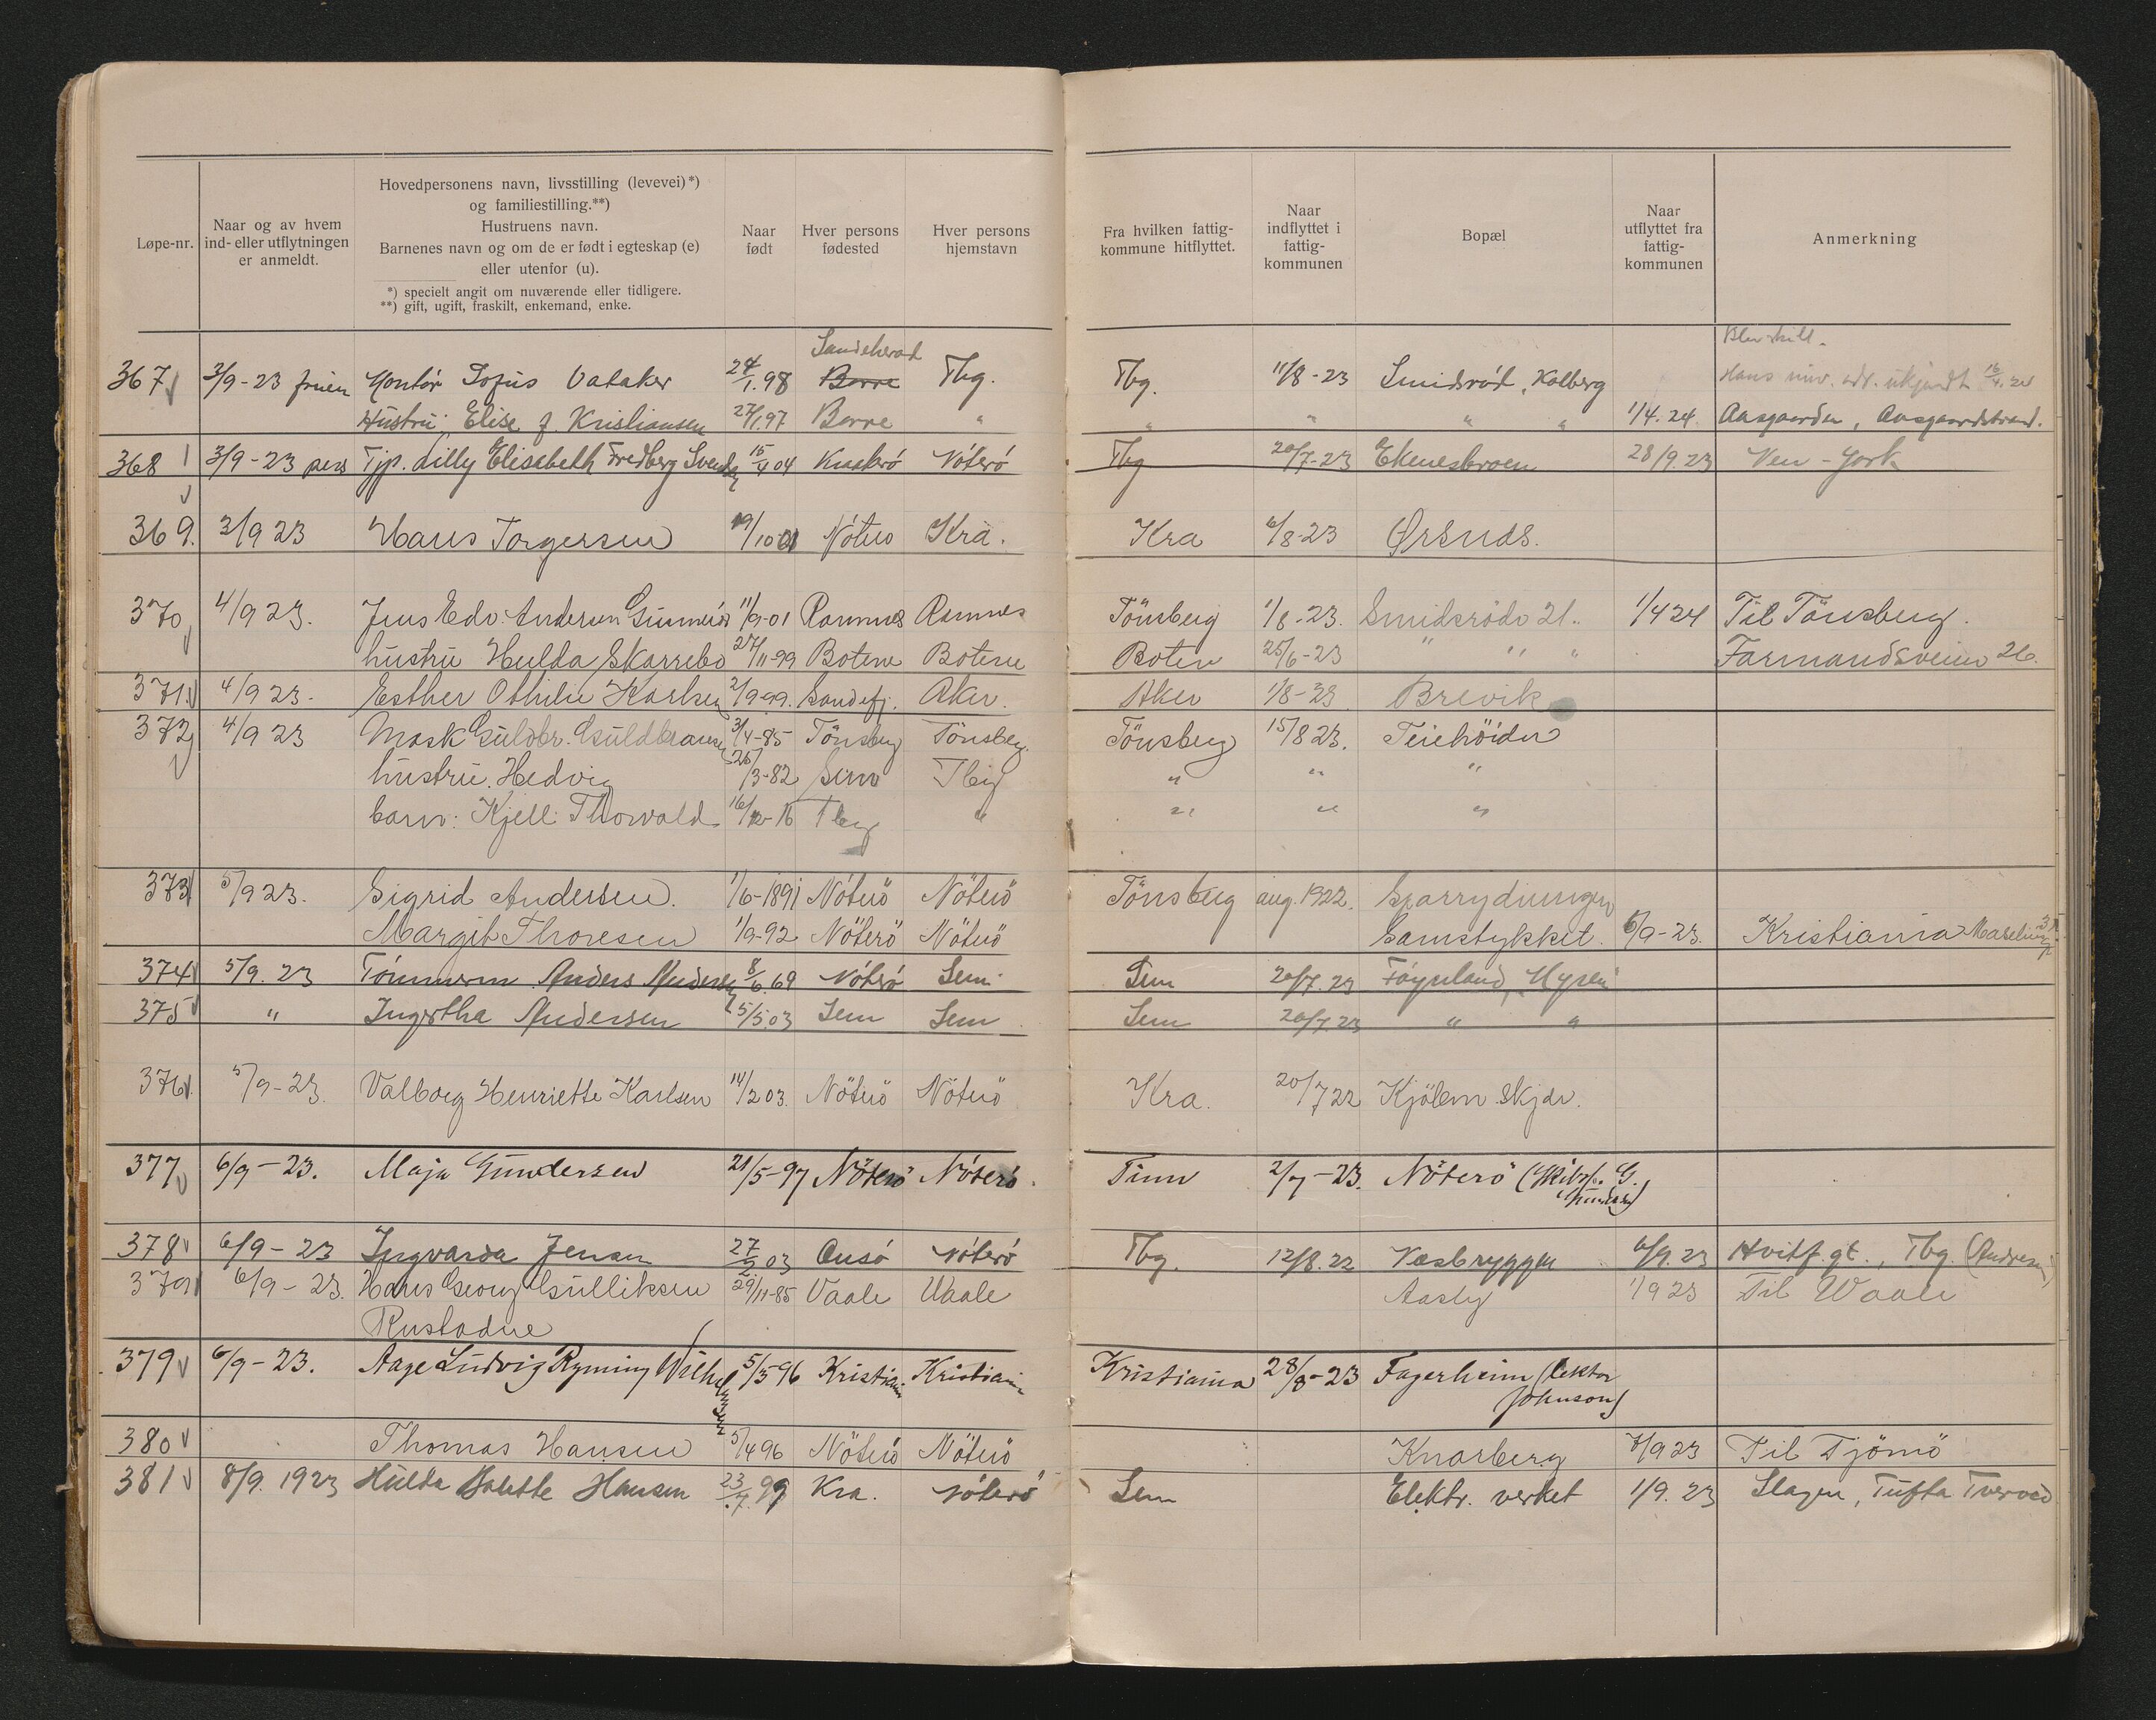 Løpe-nr.
Naar og av hvem
ind- eller utflytningen
er anmeldt.
Hovedpersonens navn, livsstilling (levevei)*)
og familiestilling.**)
Hustruens navn.
Barnenes navn og om de er født i egteskap (e)
eller utenfor (u).
*) specielt angit om nuværende eller tidligere.
**) gift, ugift, fraskilt, enkemand, enke.
Naar
født
Hver persons
fødested
Hver persons
hjemstavn
Fra hvilken fattig-
kommune hitflyttet.
Naar
indflyttet i
fattig-
kommunen
Bopæl
Naar
utflyttet fra
fattig-
kommunen
Anmerkning
Sandeherad
367 3/9-23 fruen Kontór Sofus Vataker 24/1.98 Borre Tbg. Tbg. 11/8-23 Smidsród, Kolberg
Hustru: Elise f. Kristiansen 27/1.97 Borre " " " " " 1/4.24. Aasgaarden, Aasgaardstrand.
368 3/9-23 pers Tjp. Lilly Elisabeth Fredberg 15/4 04 Nóteró Tbg 20/7-23 Ekenesbroen 28/9.23 New-York
369. 3/9 23 Hans Torgersen 19/10 01 Nóteró Kra. Kra 6/8-23 Ørsnds.
370 4/9 23. Jens Edv. Andersen 11/9-01 Ramnes Ramnes Tönsberg 1/8-23. Smidsrödv 21. 1/4 24 Til Tönsberg.
hustru Hulda Skarrebo 27/11-99 Botne Botne Botne 25/6-23 " " " Farmandsveien 26.
371. 4/9 23. Esther Othilie Karlsen 2/9-99. Sandefj. Aker. Aker 1/8-23 Brevik
372 4/9 23 Mask Guldbr. Guldbransen 3/4-85 Tönsberg Tönsberg. Tönsberg 15/8 23. Teiehöiden
hustru. Hedvig 26/3-82 Sem Tbg " " "
barn: Kjell Thorvald 16/12-16 Tbg " " " "
373 5/9 23. Sigrid Andersen. 1/6-1891 Nöterö Nöterö Tönsberg aug. 1922.
Margit Thoresen 1/9-92 Nöterö Nöterö Samstykket. 6/9-23. Kristiania
374 5/9. 23 Tómmerm. Anders Andersen 8/6.69 Nóteró Sem Sem 20/7. 23 Föynland,
375 " Ingertha Andersen 5/5.03 Sem Sem Sem 20/7. 23 " "
376 5/9-23. Valborg Henriette Karlsen 14/2 03. Nöterö Nöterö Kra. 20/7 22 Kjölem Skjdr.
377 6/9-23. Maja Gundersen 21/5-97 Nöterö Nöterö. Tinn 2/7-23. Nöterö (Skibsf. G.
Gundersen)
378 6/9-23 Ingvarda Jensen 27/2 03 Óusó Nóteró Tbg. 12/8.22 Vesbryggen 6/9. 23 Hvitf. gt., Tbg. (Andresen)
379 6/9-23. Hans Georg Gulliksen 29/11-85 Vaale Vaale Aasly 1/9 23 Til Vaale
Rustadne
379 6/9-23. Aage Ludvig Ryming Wilhelmsen 5/5-96 Kristiania Kristiania Kristiania 28/8-23 Fagerheim (lektor
Johnson)
380 Thomas Hansen 5/4 96 Nöterö Nöterö Knarberg 7/9 23 Til Tjömö
381 8/9. 1923 Hulda Bolette Hansen 23/7. 99 Kra. Nóteró Sem Elektr. verket 1/9. 23 Slagen, Tufta Tverved